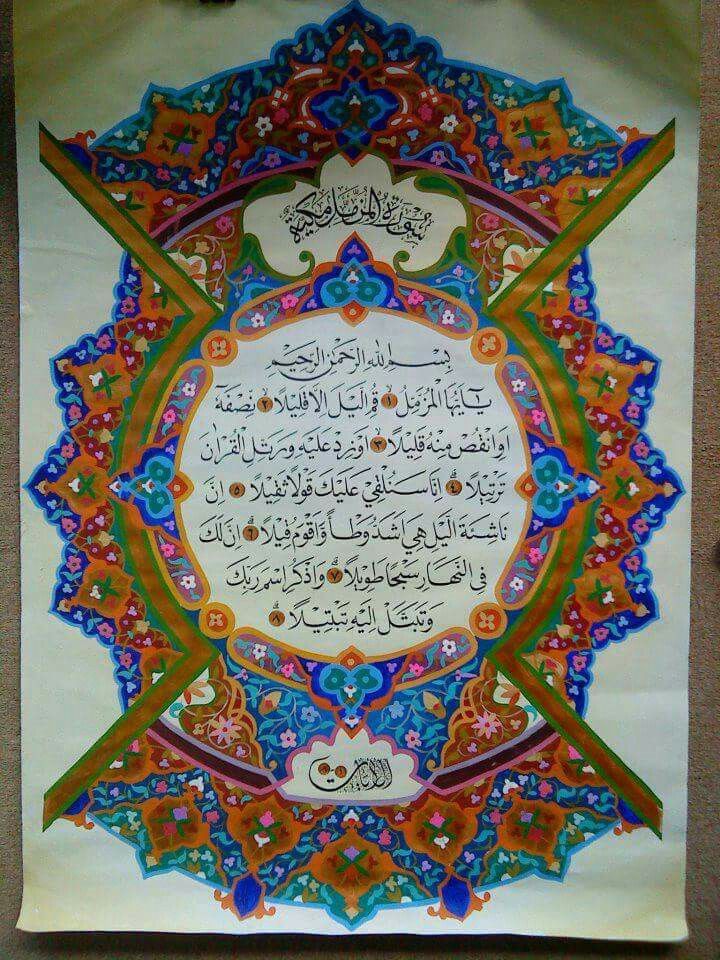 سُوْرَةُ الْمُزَّمِّلِ مَكِّيَّة
بِسْمِ اللهِ الرَّحْمٰنِ الرَّحِيْمِ
يٰٓاَيُّهَا الْمُزَّمِّلُ ۱ قُمِ الَّيْلَ اِلَّا قَلِيْلًا ۲ نِّصْفَهٗٓ
اَوِ انْقُصْ مِنْهُ قَلِيْلًا ۳ اَوْ زِدْ عَلَيْهِ وَرَتِّلِ الْقُرْاٰنَ
تَرْتِيْلًا ۴ اِنَّا سَنُلْقِيْ عَلَيْكَ قَوْلًا ثَقِيْلًا ۵ اِنَّ
نَاشِئَةَ الَّيْلِ هِيَ اَشَدُّ وَطْأً وَّاَقْوَمُ قِيْلًا ۶ اِنَّ لَكَ
فِى النَّهَارِ سَبْحًا طَوِيْلًا ۷ وَاذْكُرِ اسْمَ رَبِّكَ
وَتَبَتَّلْ اِلَيْهِ تَبْتِيْلًا ۸
الاٰيات